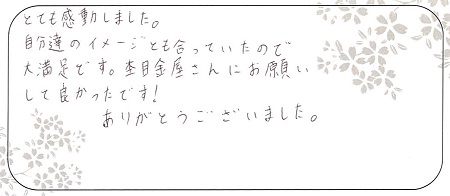 とても感動しました。
自分達のイメージとも合っていたので
大満足です。杢目金屋さんにお願い
して良かったです!
ありがとうございました。